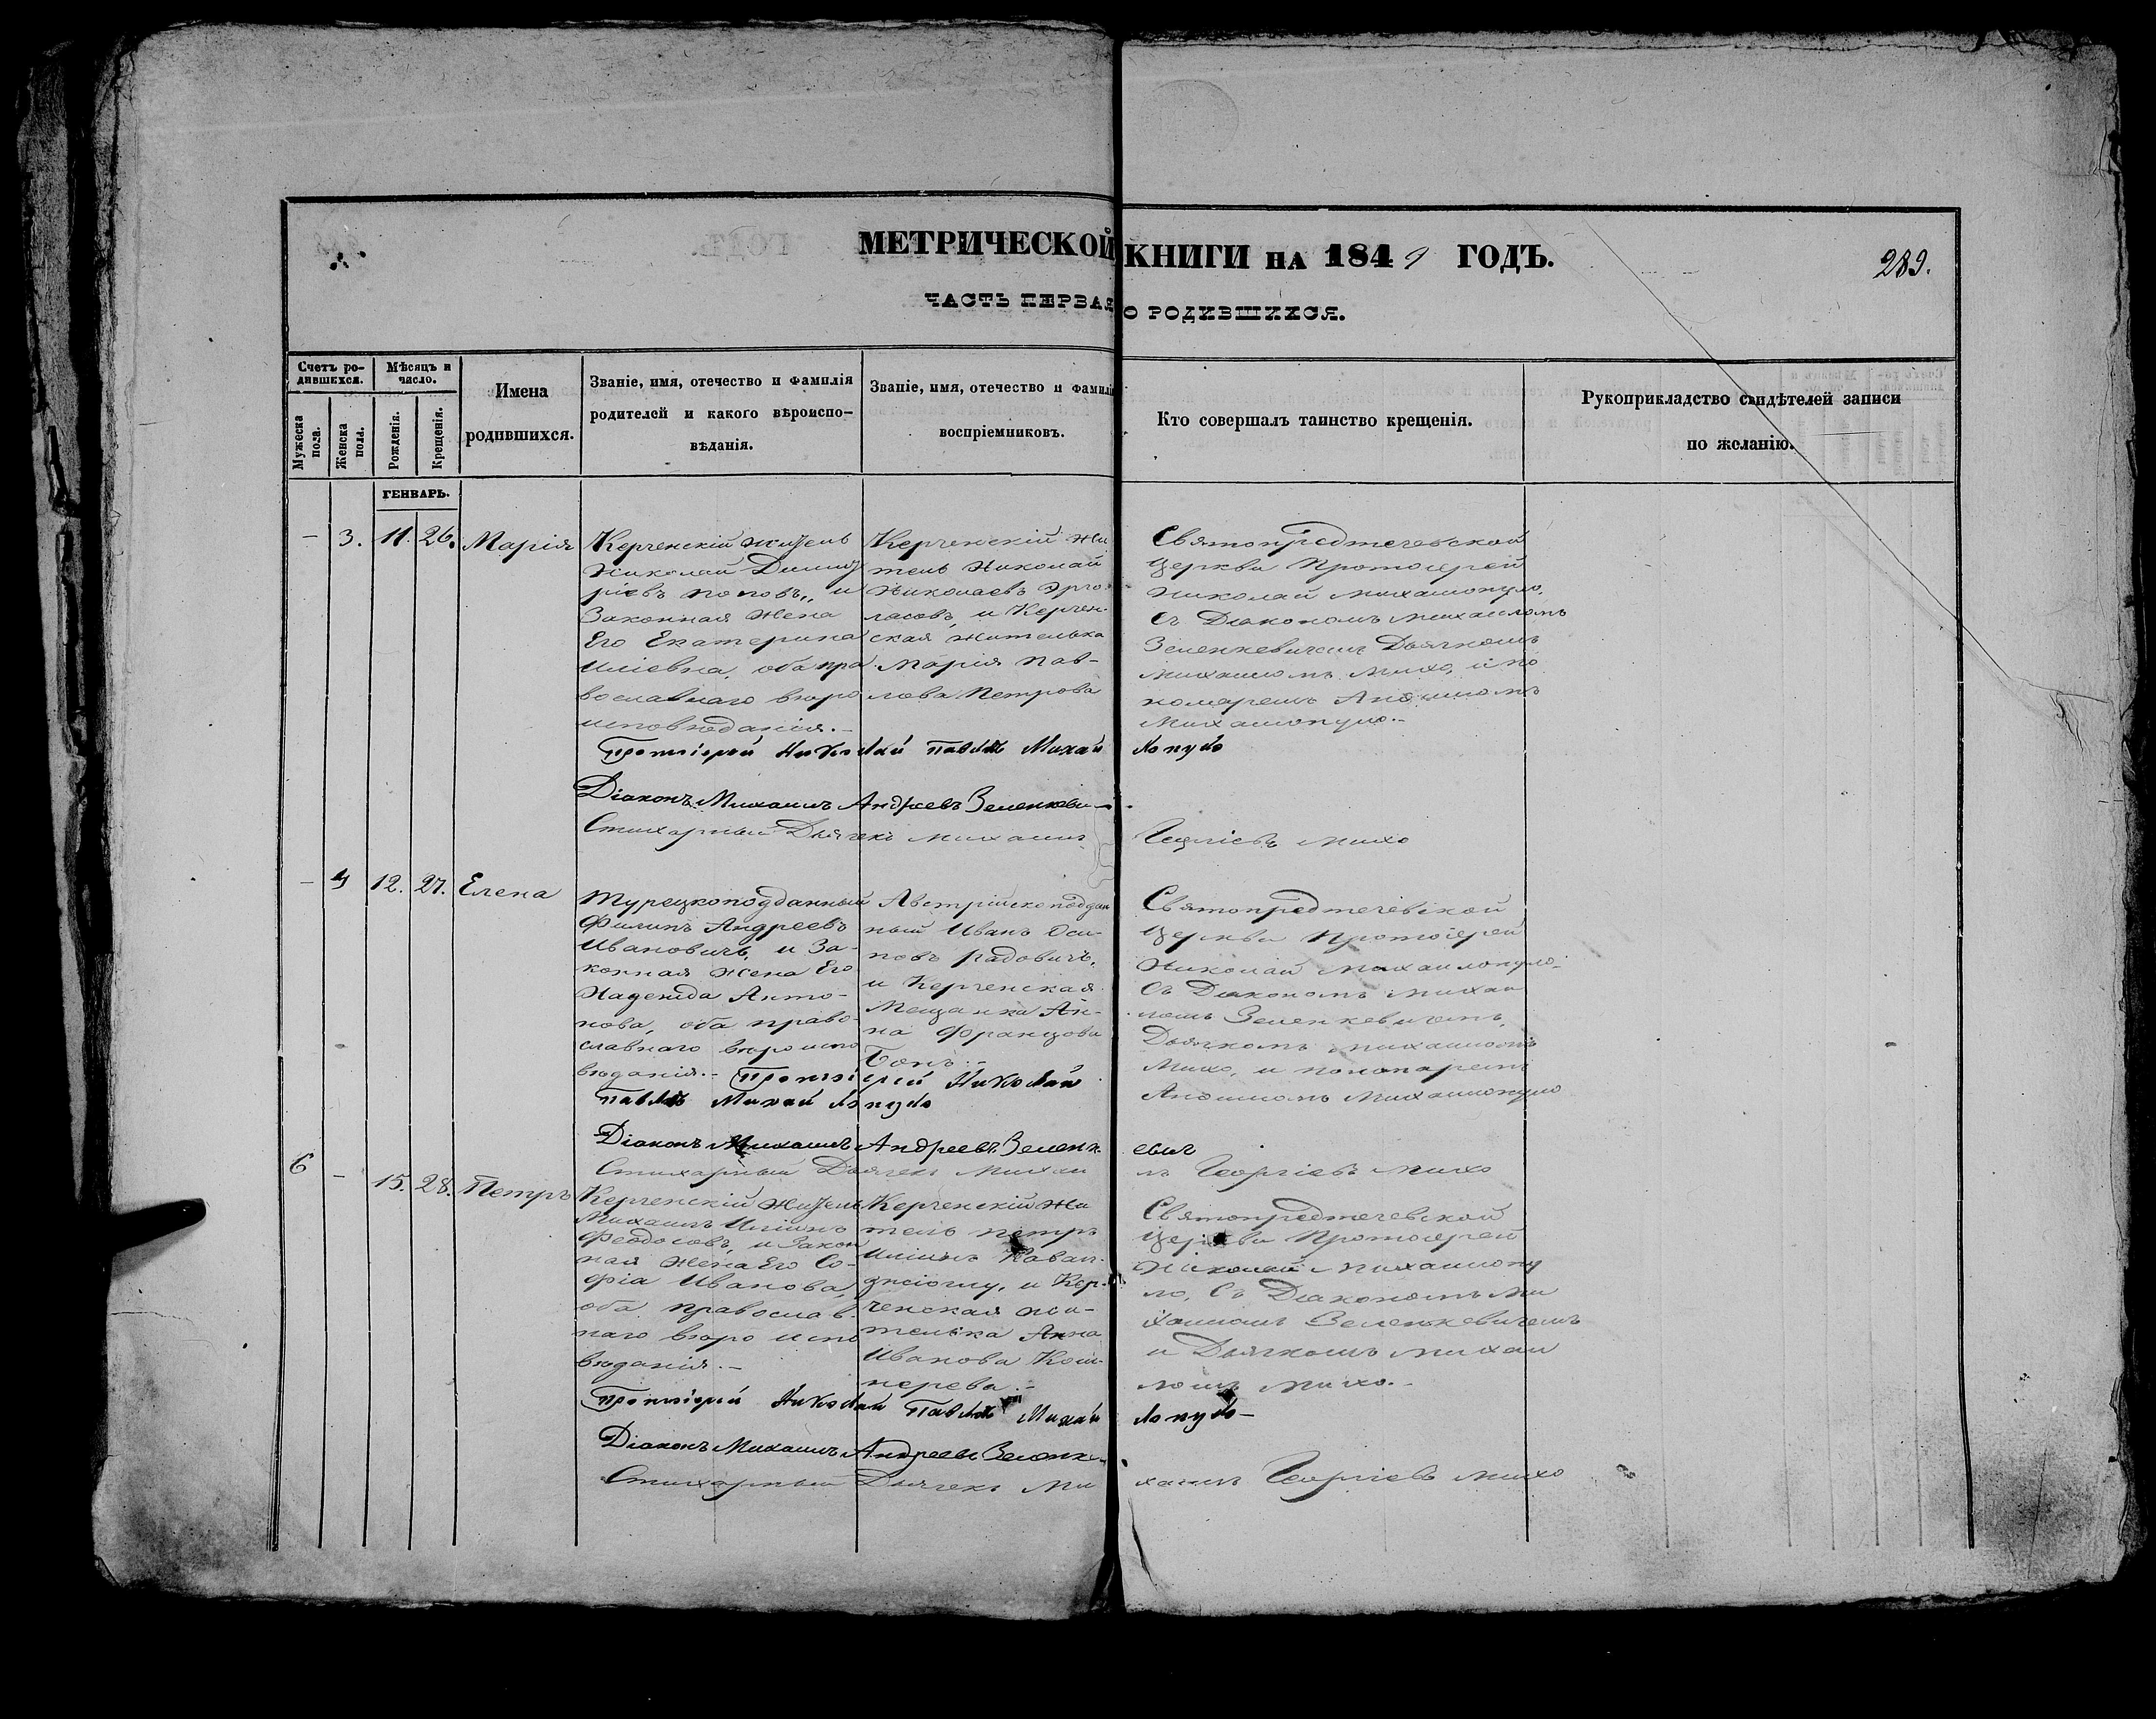 МЕТРИЧЕСКОЙ КНИГИ НА 1849 ГОДЪ.
289.
ЧАСТЬ ПЕРВАЯ О РОДИВШИХСЯ.
Счетъ ро-
дившихся.
Мужеска
пола.
Женска
пола.
Мѣсяцъ и
число.
Рожденія.
Крещенія.
Имена
родившихся.
Званіе, имя, отечество и фамилія
родителей и какого вѣроиспо-
вѣданія.
Званіе, имя, отечество и фамилія
воспріемниковъ.
Кто совершалъ таинство крещенія.
Рукоприкладство свидѣтелей записи
по желанію.
ГЕНВАРЬ.
– 3. 11. 26. Марія
Керченскій житель
Николай Димит
ріевъ Поповъ, и
Законная Жена
Его Екатерина
Иліевна, оба пра
вославнаго вѣро
исповѣданія.–
Керченскій жи
тель Николай
Николаевъ
и Керчен-
ская жителька
Марія Пав-
лова Петрова
Святопредтечевской
Церкви Протоіерей
Николай Михайлопуло,
Съ Діакономъ Михаиломъ
Зеленкевичемъ Дьячкомъ
Михаиломъ Михо, и по
номаремъ
Михайлопуло.–
Протоіерей Николай Павловъ Михайлопуло
Діаконъ Михаилъ Андреевъ Зеленкеви
Стихарный Дьячекъ Михаилъ Георгіевъ Михо
– 4 12. 27. Елена
Турецкоподданный
Филипъ Андреевъ
Ивановичъ, и За-
конная Жена Его
Надежда Анто-
нова, оба право-
славнаго вѣроиспо
вѣданія.–
Австрійскоподдан
ный Иванъ Оси-
повъ Радовичъ,
и Керченская
Мещанка Ан-
на Францова
Святопредтечевской
Церкви Протоіерей
Николай Михайлопуло
Съ Діакономъ Михаи
ломъ Зеленкевичемъ,
Дьячкомъ Михаиломъ
Михо, и пономаремъ
Михайлопуло
Протоіерей Николай
Павловъ Михайлопуло
Діаконъ Михаилъ Андреевъ Зеленкевич
Стихарный Дьячекъ Михаилъ Георгіевъ Михо
6 – 15. 28. Петръ
Керченскій житель
Михаилъ Иліинъ
Феодосовъ, и Закон
ная Жена Его Со-
фіа Иванова,
оба православ-
наго вѣро испо
вѣданія.–
Керченскій жи
тель Петръ
Иліинъ
и Кер-
ченская жи-
телька Анна
Иванова
Святопредтечевской
Церкви Протоіерей
Николай Михайлопу
ло, Съ Діакономъ Ми
хаиломъ Зеленкевичемъ
и Дьячкомъ Михаи
ломъ Михо.–
Протоіерей Николай Павловъ Михайлопуло–
Діаконъ Михаилъ Андреевъ Зеленке
Стихарный Дьячекъ Михаилъ Георгіевъ Михо